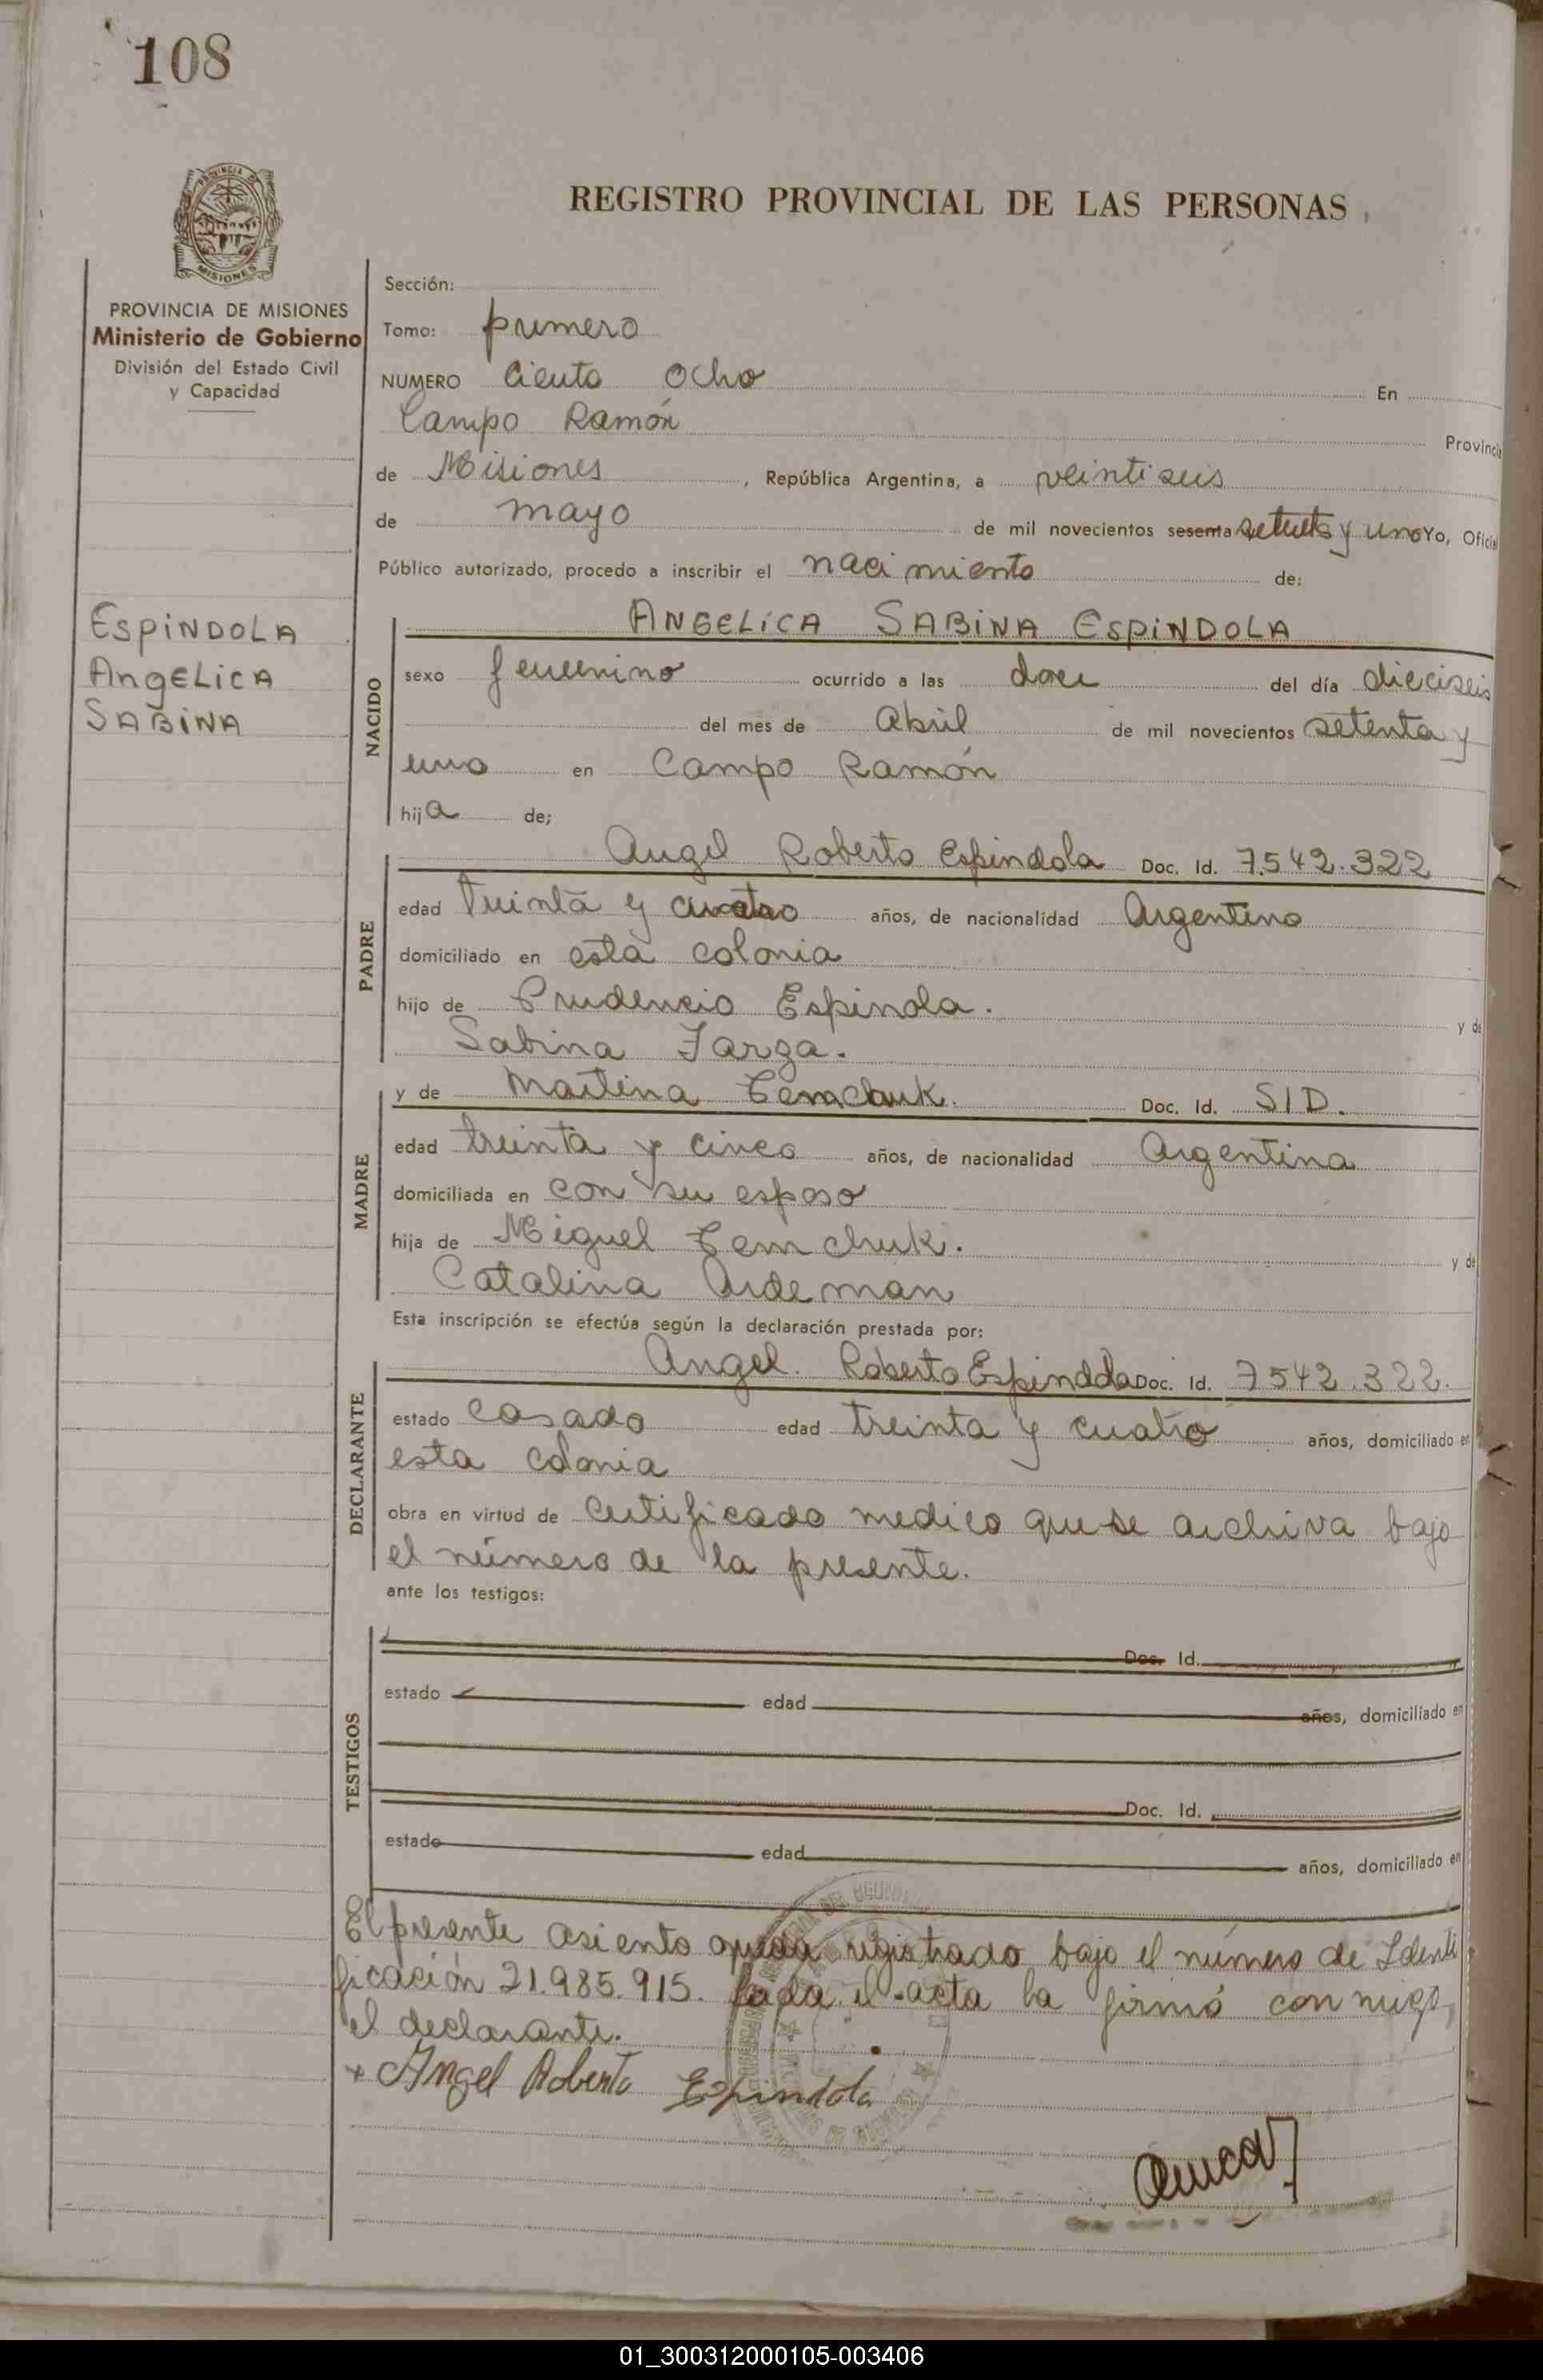 108
PROVINCIA DE
MISIONES
REGISTRO PROVINCIAL DE LAS PERSONAS
PROVINCIA DE MISIONES
Ministerio de Gobierno
División del Estado Civil
y Capacidad
ESPINDOLA
ANGELICA
SABINA
Sección:
Tomo: primero
NUMERO ciento ocho En
Campo Ramón Provincia
de Misiones, República Argentina, a veintiseis
de mayo de mil novecientos sesenta setenta y uno Yo, Oficial
Público autorizado, procedo a inscribir el nacimiento de:
NACIDO
ANGELICA SABINA ESPINDOLA
sexo femenino ocurrido a las doce del día dieciseis
del mes de Abril de mil novecientos setenta y
uno en Campo Ramón
hija de;
PADRE
Angel Roberto Espindola Doc. Id. 7.542.322
edad treinta y cuatro años, de nacionalidad Argentino
domiciliado en esta colonia
hijo de Prudencio Espinola. y de
Sabina Farza.
MADRE
y de Martina Temchuk. Doc. Id. S/D.
edad treinta y cinco años, de nacionalidad Argentina
domiciliada en con su esposo
hija de Miguel Temchuk. y de
Catalina Ardeman
Esta inscripción se efectúa según la declaración prestada por:
DECLARANTE
Angel. Roberto Espindola Doc. Id. 7542.322.
estado casado edad treinta y cuatro años, domiciliado en
esta colonia
obra en virtud de certificado medico que se archiva bajo
el número de la presente.
ante los testigos:
TESTIGOS
Doc. Id.
estado edad años, domiciliado en
Doc. Id.
estado edad años, domiciliado en
El presente asiento queda registrado bajo el número de Identi
ficación 21.985.915. Leida el acta la firmó conmigo,
el declarante.
+ Angel Roberto Espindola
01_300312000105-003406